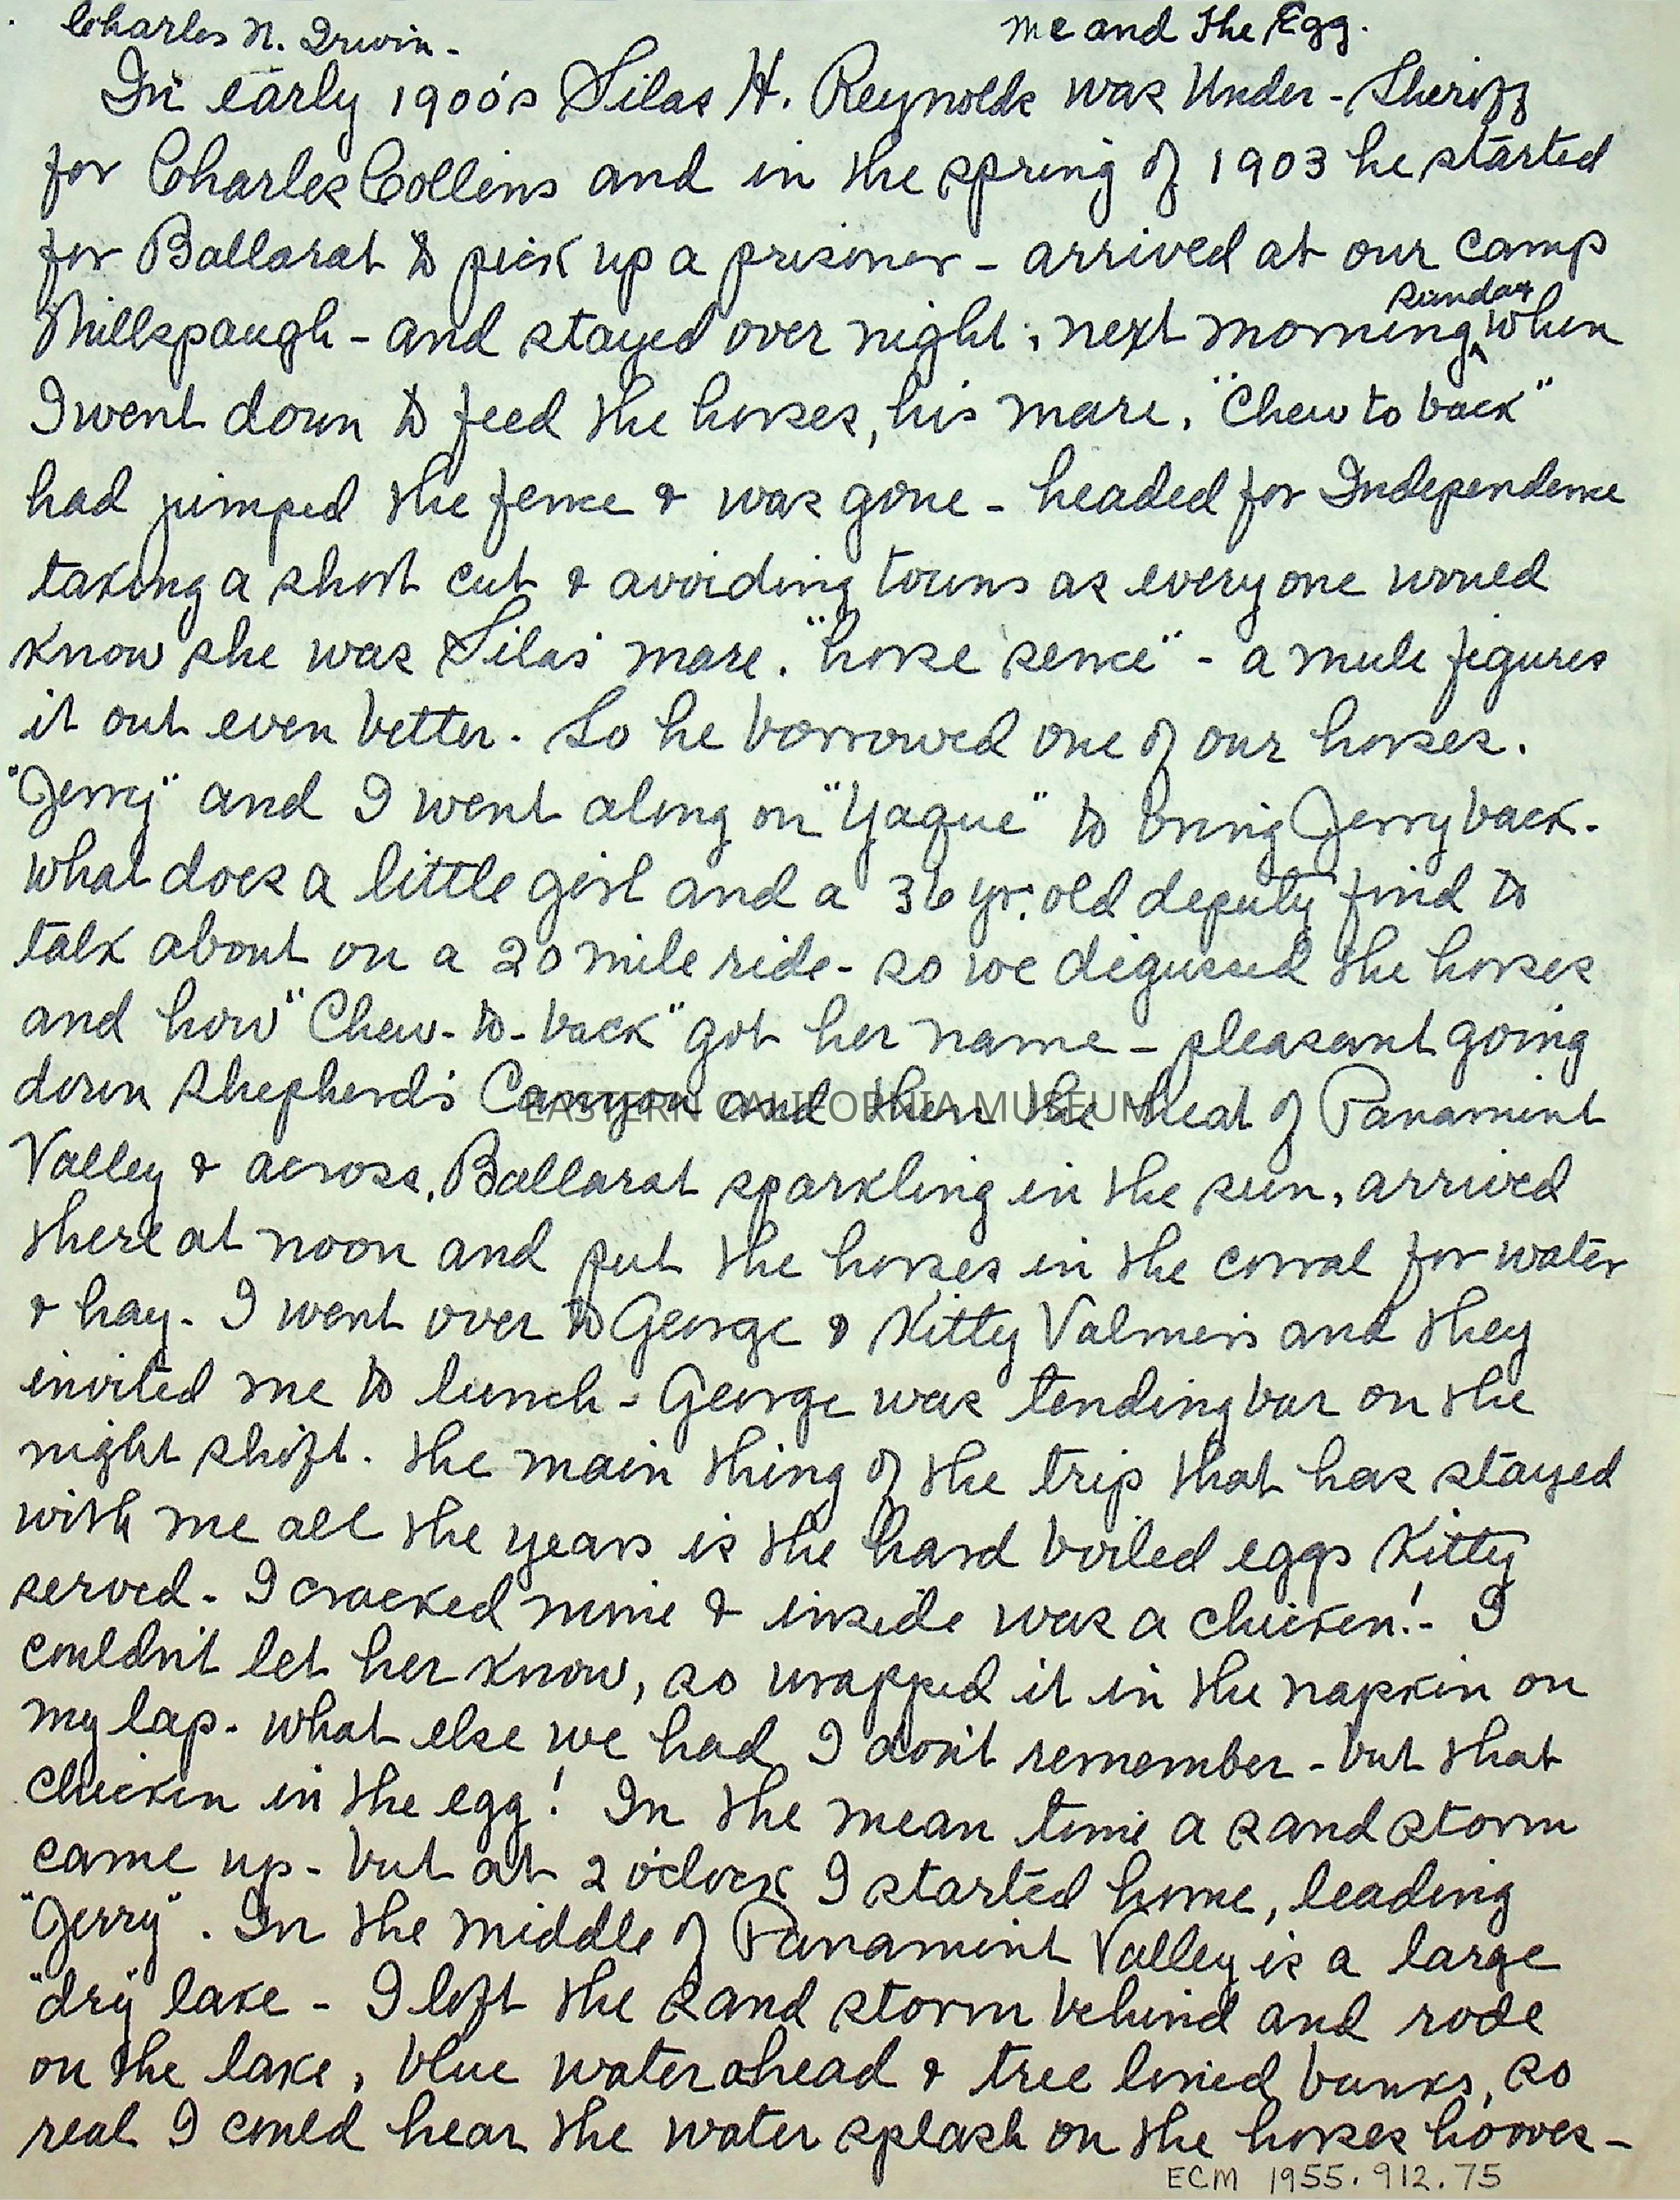 Charles N. Irwin -
me and the Egg.
In early 1900's Silas H. Reynolds was Under-Sheriff
for Charles Collins and in the spring of 1903 he started
for Ballarat to pick up a prisoner - arrived at our camp
Millspaugh - and stayed over night; next morning sunday when
I went down to feed the horses, his mare, "Chew to back"
had jumped the fence & was gone - headed for Independence
taking a short cut & avoiding towns as everyone would
know she was Silas' mare. "horse sence" - a mule figures
it out even better. So he borrowed one of our horses.
"Jerry" and I went along on "Yaque" to bring Jerry back.
what does a little girl and a 36 yr. old deputy find to
talk about on a 20 mile ride - so we digussed the horses
and how "Chew-to-back" got her name - pleasant going
down Shepherd's Canyon and then the heat of Panamint
EASTERN CALIFORNIA MUSEUM
Valley & across, Ballarat sparkling in the sun, arrived
there at noon and put the horses in the corral for water
& hay. I went over to George & Kitty Valmers and they
invited me to lunch - George was tending bar on the
night shift. the main thing of the trip that has stayed
with me all the years is the hard boiled eggs Kitty
served. I cracked mine & inside was a chicken! - I
couldn't let her know, so wrapped it in the napkin on
my lap. what else we had I don't remember - but that
chicken in the egg! In the mean time a sand storm
came up - but at 2 o'clock I started home, leading
"Jerry". In the middle of Panamint Valley is a large
"dry" lake - I left the sand storm behind and rode
on the lake, blue water ahead & tree lined banks, so
real I could hear the water splash on the horses hooves -
ECM 1955.912.75